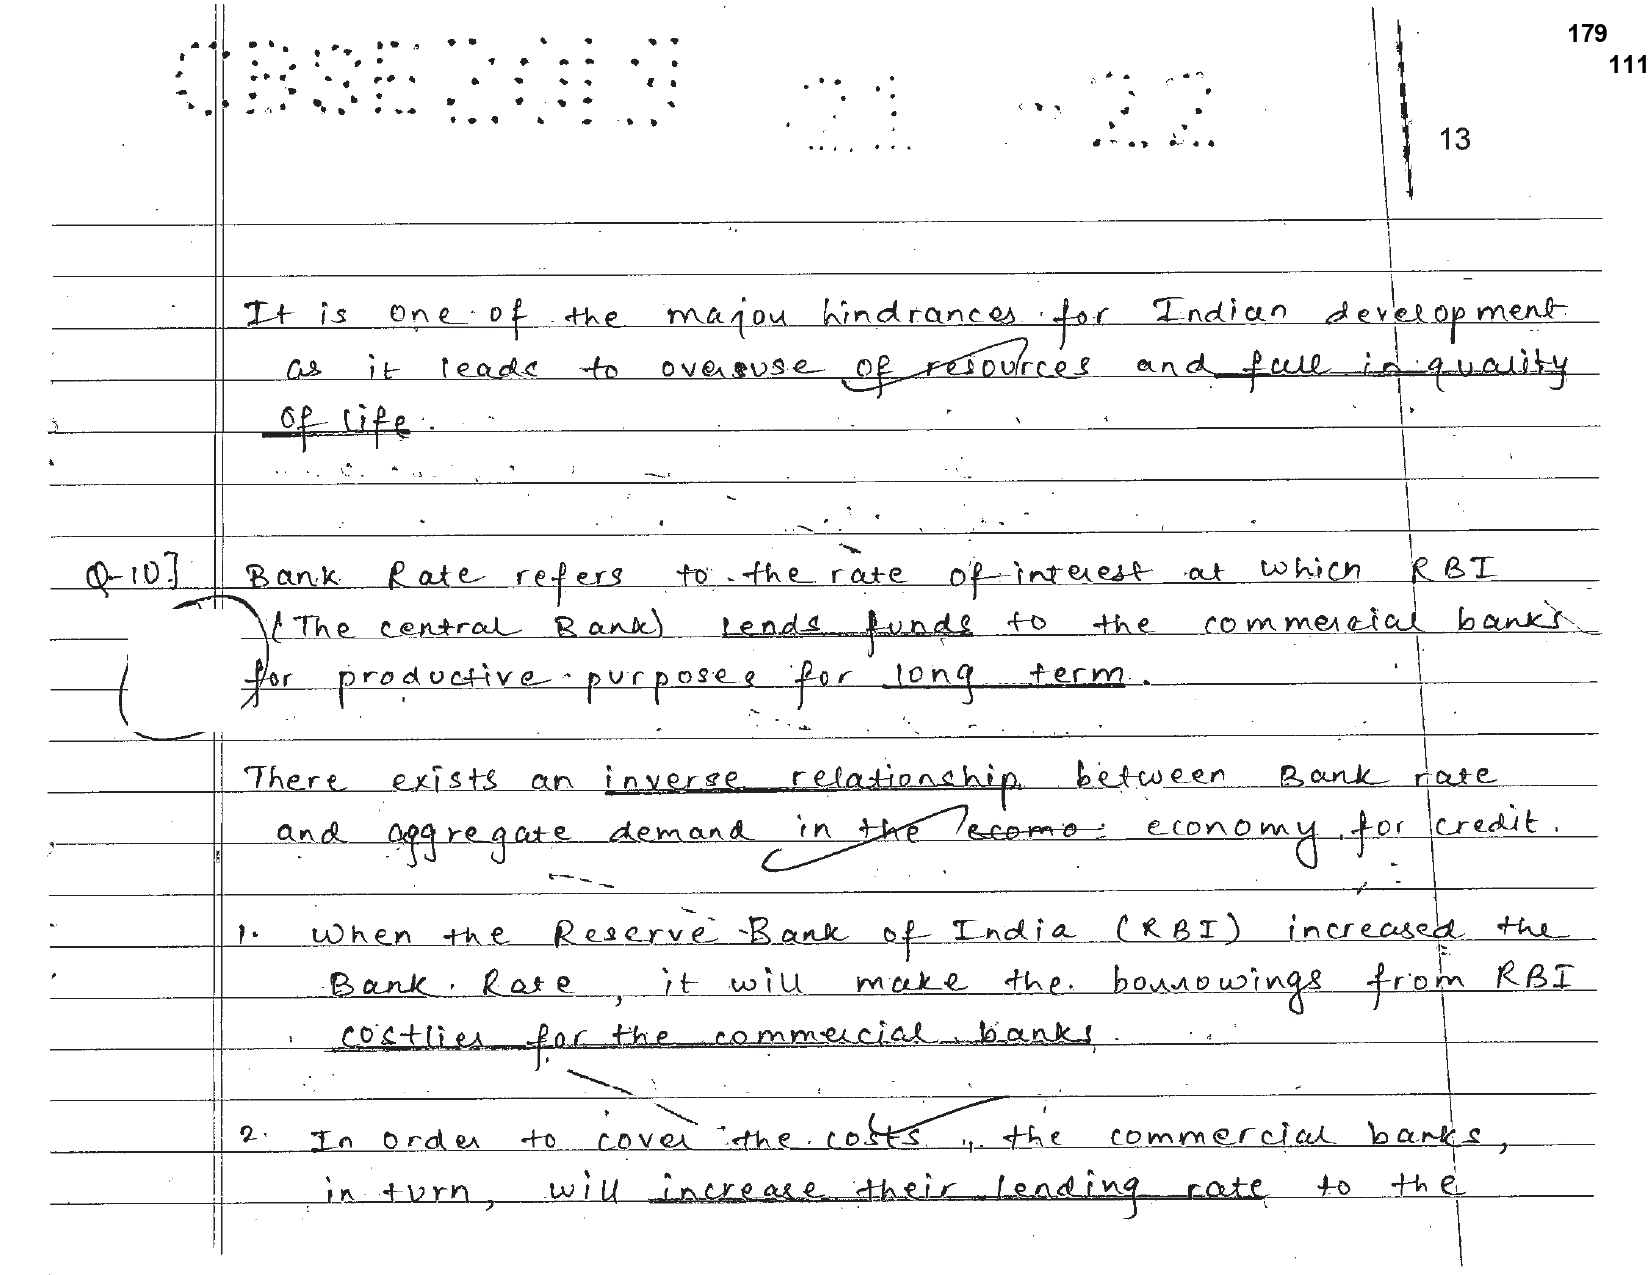 179
111
CBSE 2019 21 - 22
13
It is one of the major hindrances for Indian development
as it leads to overuse of resources and fall in quality
of life.
Q-10] Bank Rate refers to the rate of interest at which RBI
(The central Bank) lends funds to the commercial banks
for productive purposes for long term.
There exists an inverse relationship between Bank rate
and aggregate demand in the ecomo economy for credit.
1. When the Reserve Bank of India (RBI) increased the
Bank Rate, it will make the borrowings from RBI
costlier for the commercial banks.
2. In order to cover the costs, the commercial banks,
in turn, will increase their lending rate to the